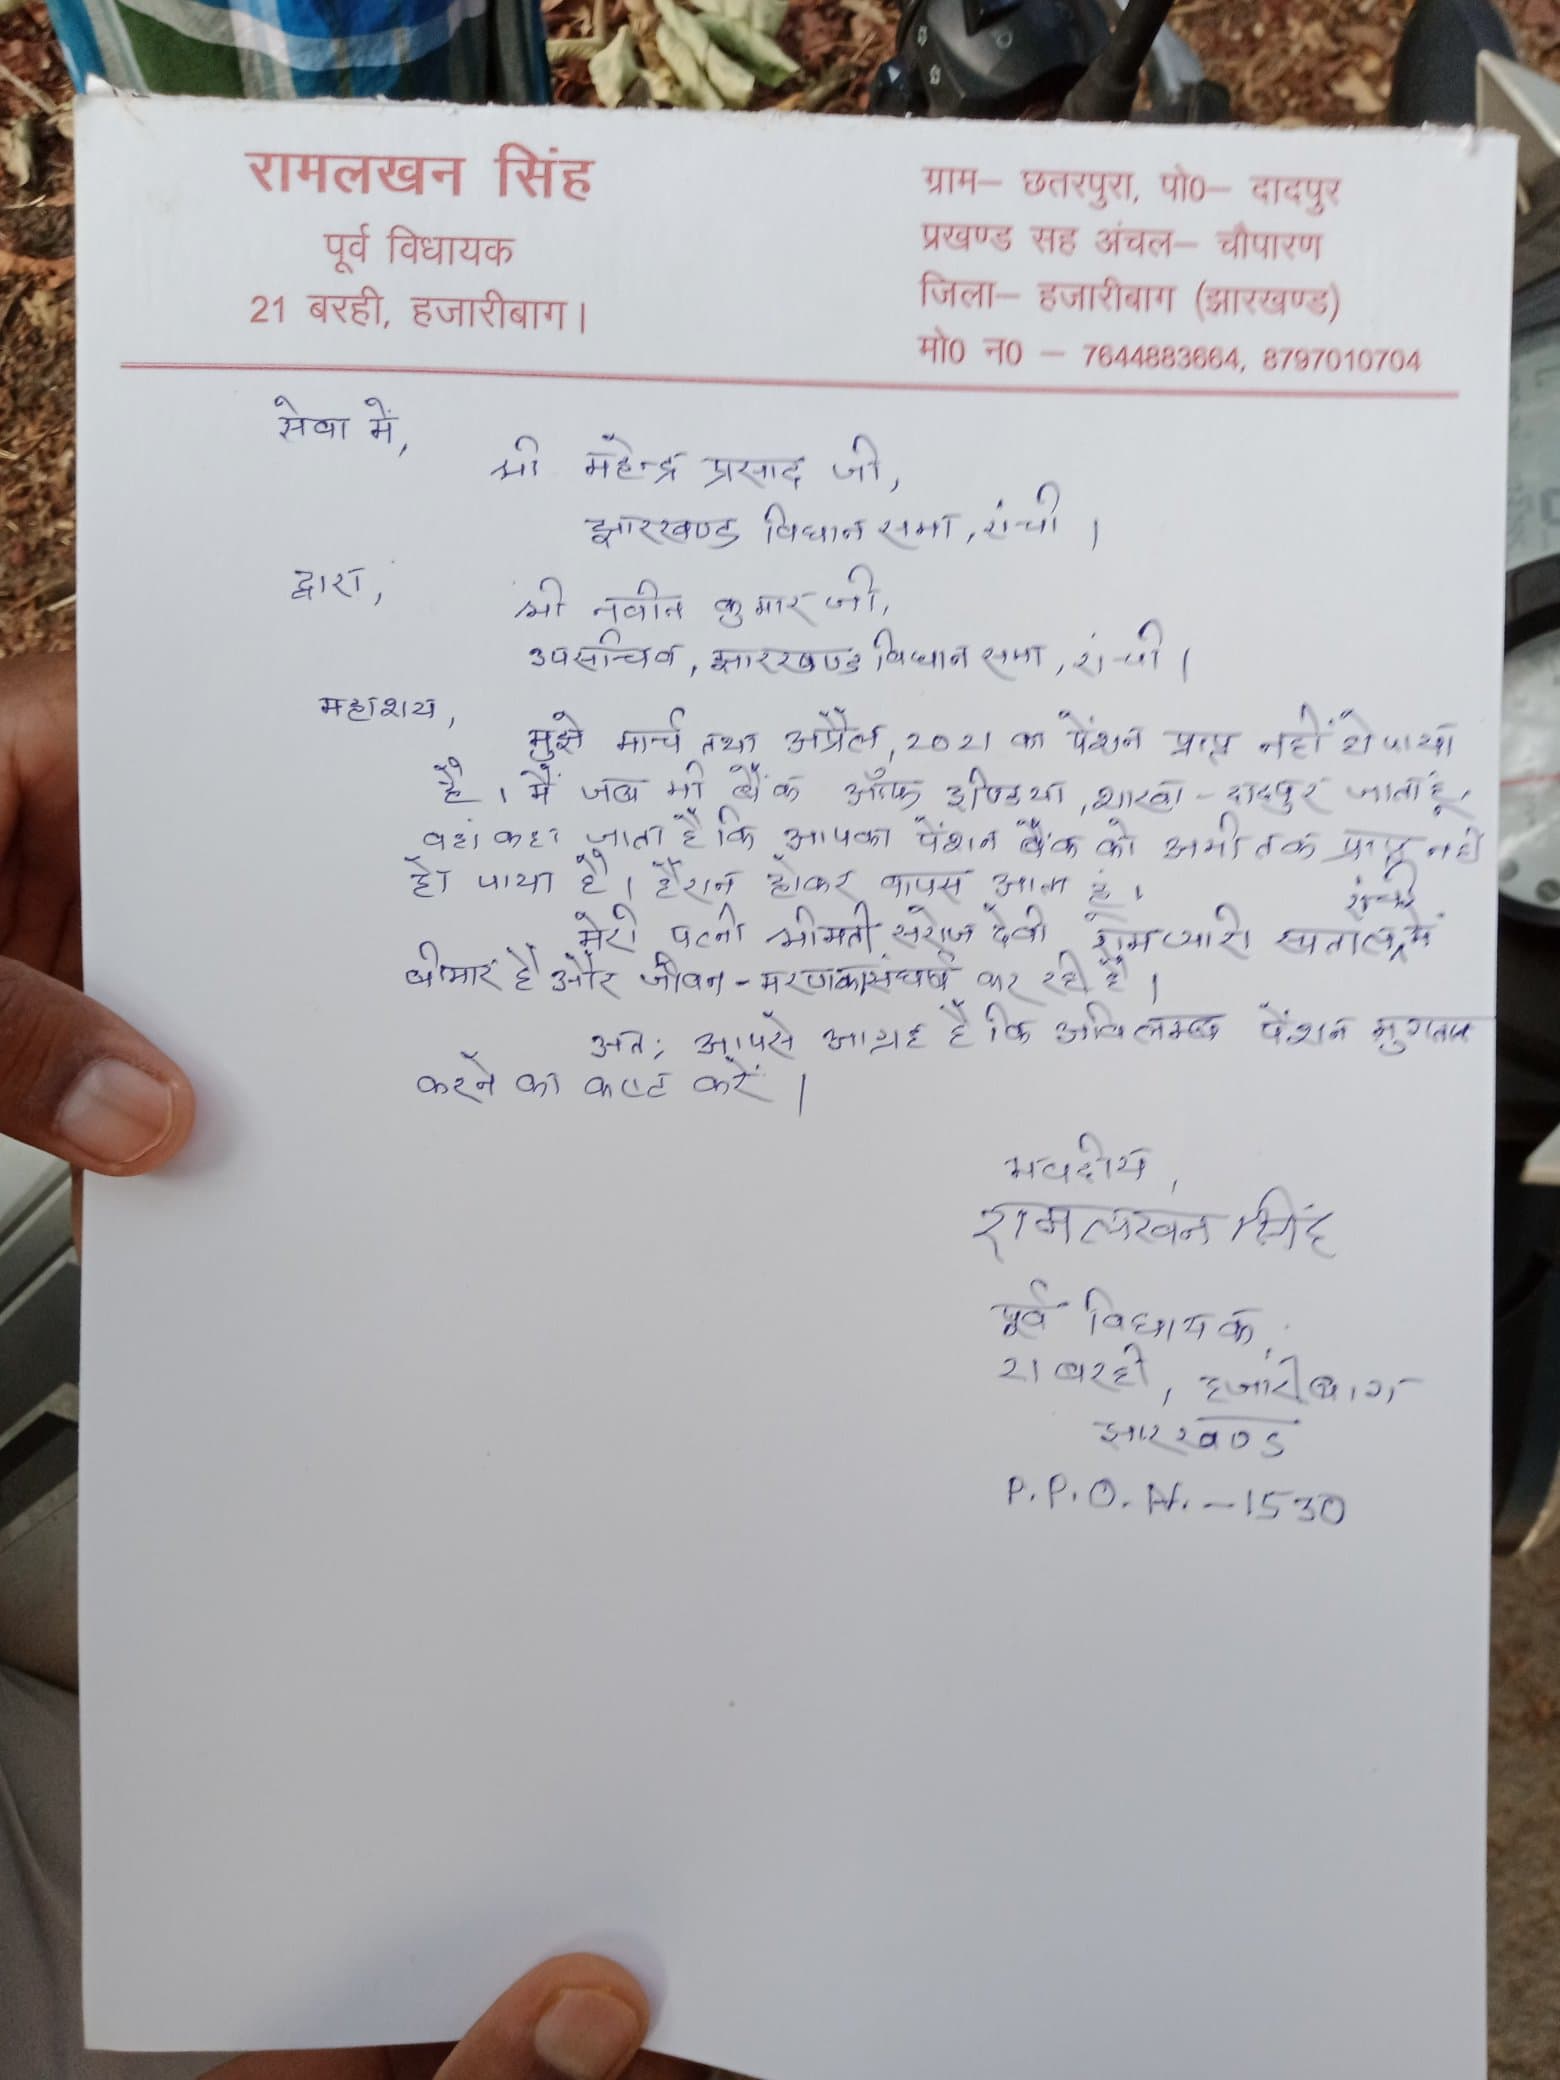 रामलखन सिंह
पूर्व विधायक
21 बरही, हजारीबाग।
ग्राम– छतरपुरा, पो0– दादपुर
प्रखण्ड सह अंचल– चौपारण
जिला– हजारीबाग (झारखण्ड)
मो0 न0 – 7644883664, 8797010704
सेवा में,
श्री महेन्द्र प्रसाद जी,
झारखण्ड विधान सभा, रांची।
द्वारा,
श्री नवीन कुमार जी,
उपसचिव, झारखण्ड विधान सभा, रांची।
महाशय,
मुझे मार्च तथा अप्रैल, 2021 का पेंशन प्राप्त नहीं हो पाया
है। मैं जब भी बैंक ऑफ इण्डिया, शाखा - दादपुर जाता हूं,
वहां कहा जाता है कि आपका पेंशन बैंक को अभी तक प्राप्त नहीं
हो पाया है। हैरान होकर वापस आता हूं।
रांची
मेरी पत्नी श्रीमती सरोज देवी रामप्यारी स्पताल में
बीमार है और जीवन - मरण का संघर्ष कर रही है।
अत: आपसे आग्रह है कि अविलम्ब पेंशन भुगतान
करने का कष्ट करें।
भवदीय,
रामलखन सिंह
पूर्व विधायक,
21 बरही, हजारीबाग
झारखण्ड
P.P.O.N. – 1530